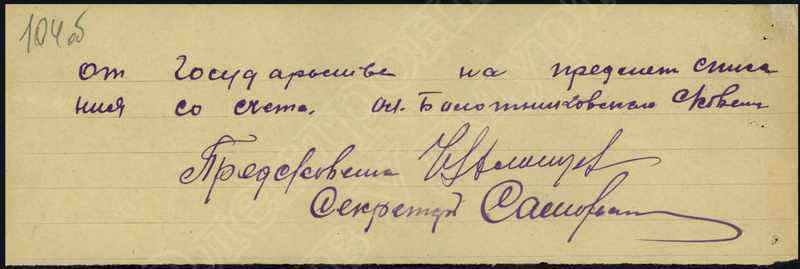 104 об
от Государства на предмет списа
ния со счета. От. Болотниковского с/совета
Пред с/совета
Секретарь